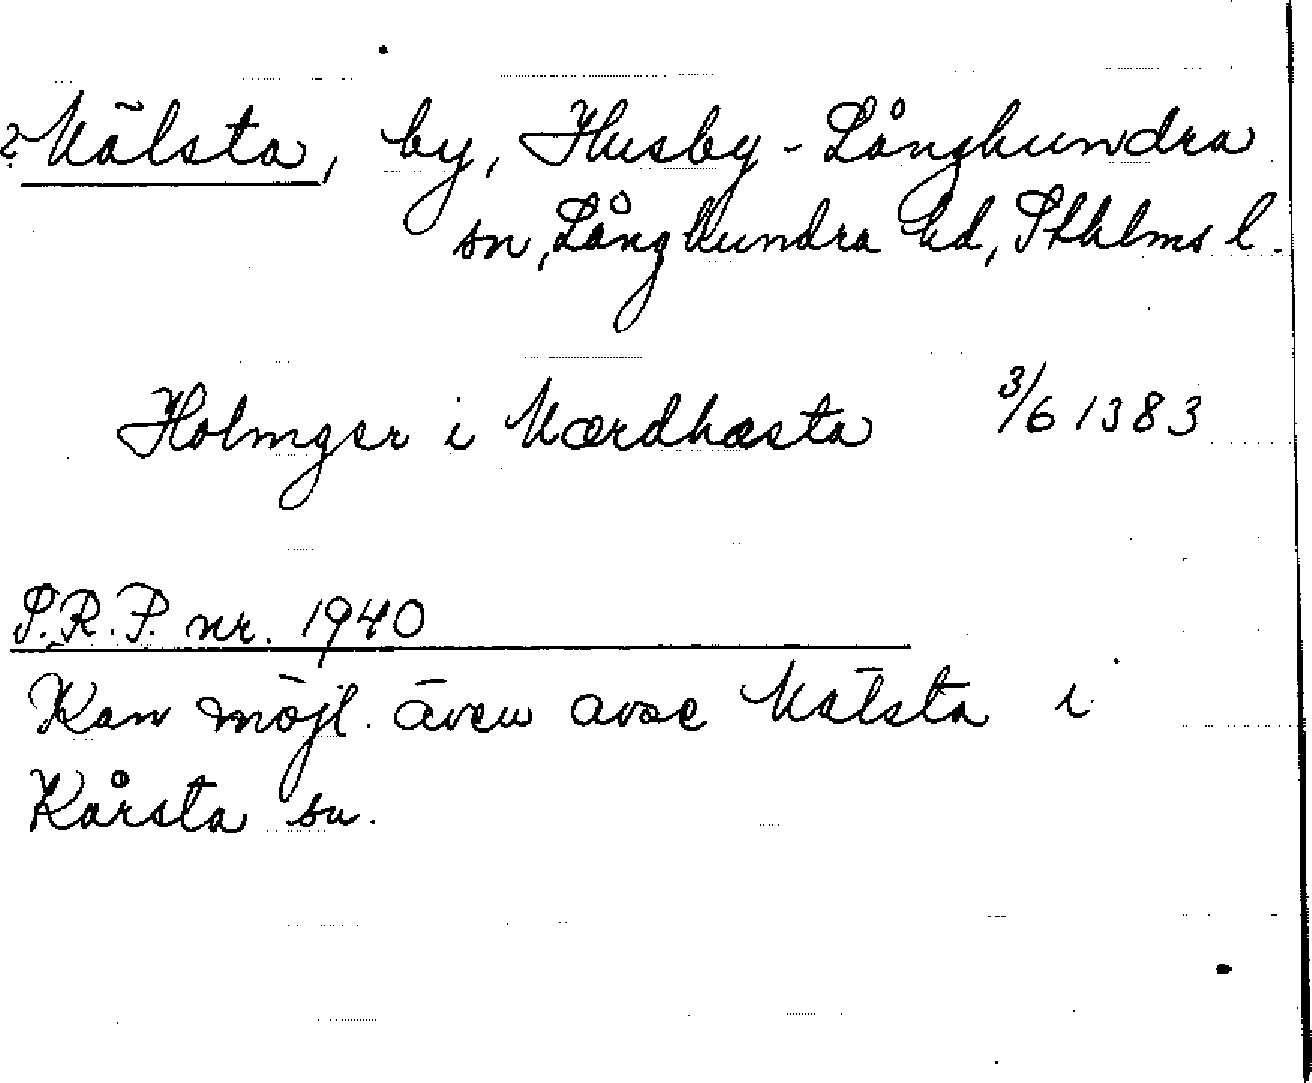 ? Nälsta, by, Husby-Långhundra
sn, Långhundra hd, Sthlms l.
Holmger i Nærdhæsta 3/6 1383
S.R.P. nr. 1940
Kan möjl. även avse Nälsta i
Kårsta sn.